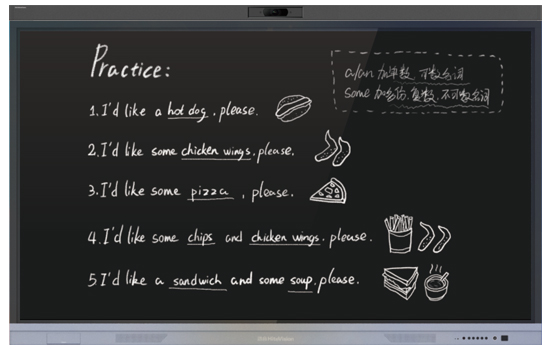 Practice:
a/an 加单数 可数名词
some 加 复数、不可数名词
1. I'd like a hot dog, please.
2. I'd like some chicken wings, please.
3. I'd like some pizza, please.
4. I'd like some chips and chicken wings, please.
5 I'd like a sandwich and some soup, please.